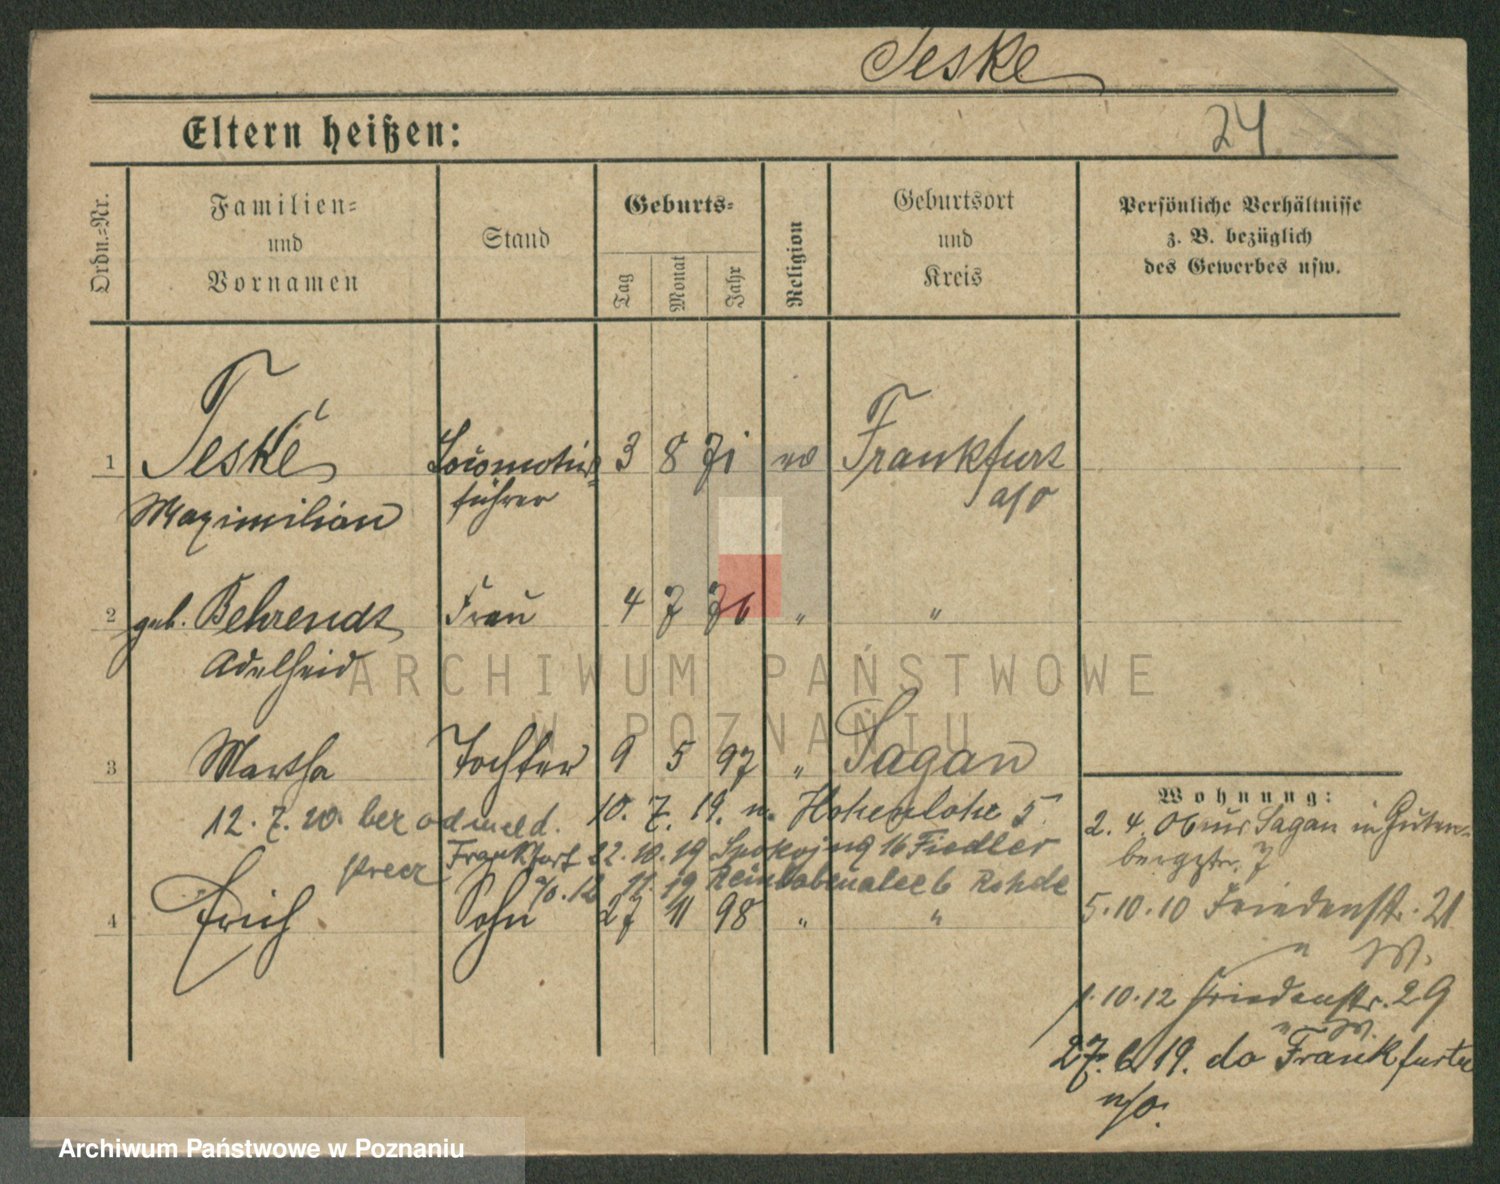 Teske
Eltern heißen:
24
Ordn.-Nr.
Familien-
und
Vornamen
Stand
Geburts-
Tag
Monat
Jahr
Religion
Geburtsort
und
Kreis
Persönliche Verhältnisse
z. B. bezüglich
des Gewerbes usw.
1 Teske Locomotiv- 3 8 71 ev Frankfurt
Maximilian führer a/o
2 geb. Behrendt Frau 4 7 76 " "
Adelheid
3 Martha Tochter 9 5 97 " Sagan
12. 7. 20. 10. 7. 19. n. Hohenlohe 5
Frankfurt 22. 10. 19 Spokojna 16 Fiedler
a/o. 12 11. 19 Rohde
4 Erich Sohn 27 11 98 " "
Wohnung:
2. 4. 06 aus Sagan in Guten-
bergstr. 7
5. 10. 10 Friedenstr. 21
n W.
1. 10. 12 Friedenstr. 29
n W.
27. 6. 19. do Frankfurt
a/o.
ARCHIWUM PAŃSTWOWE
W POZNANIU
Archiwum Państwowe w Poznaniu